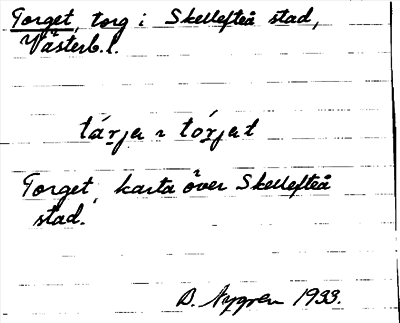 Torget, torg i Skellefteå stad,
Västerb. l.
tárja ɿ tórjet
Torget, karta över Skellefteå
stad.
B. Nygren 1933.